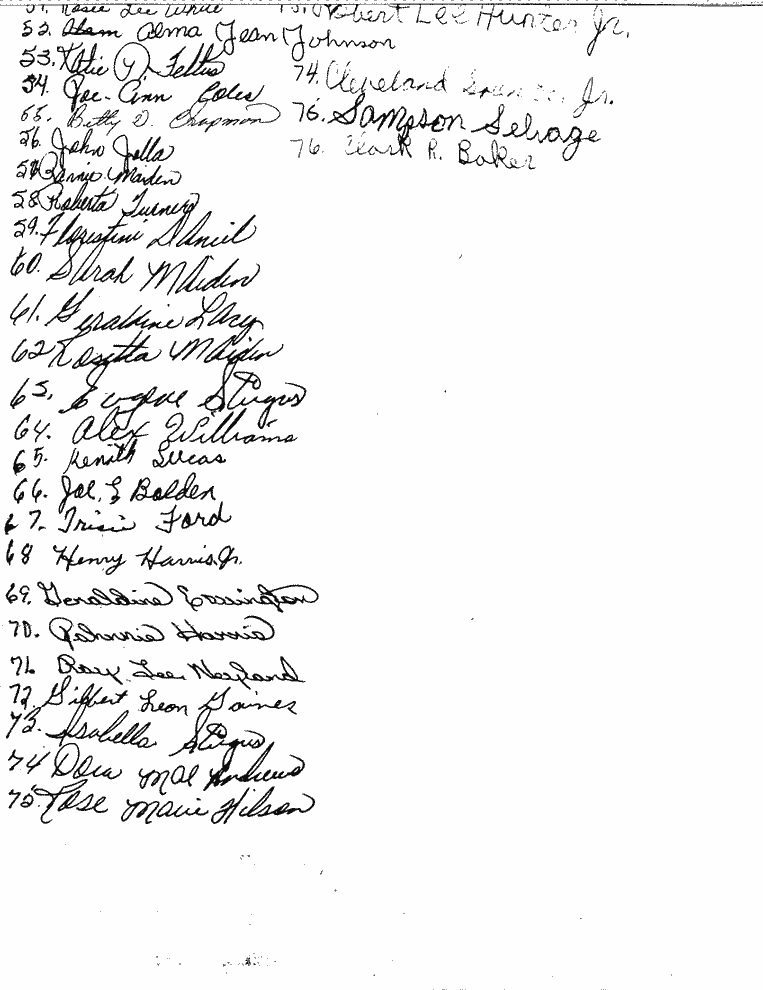 51. Rosie Lee White
52. Alma Jean Johnson
53. Katie D. Feltus
54. Joe-Ann Coles
55. Betty D. Chapman
56. John Jolla
57. Bennie Maiden
58 Roberta Turner
59. Florestini Daniel
60. Sarah Maiden
61. Geraldine Lacy
62 Rosetta Maiden
63. Eugene Sturgus
64. Alex Williams
65. Kenith Lucas
66. Joe, E Bolden
67. Trisie Ford
68 Henry Harris, Jr.
69. Geraldine Essington
70. Harris
71. Ray Lee Neyland
72. Gilbert Leon Gaines
73. Isabella Sturgus
74 Dora Mae Andrews
75. Rose Marie Hilson
Robert Lee Hunter Jr.
74. Cleveland Jr.
75. Sampson Selvage
76. Clark R. Baker